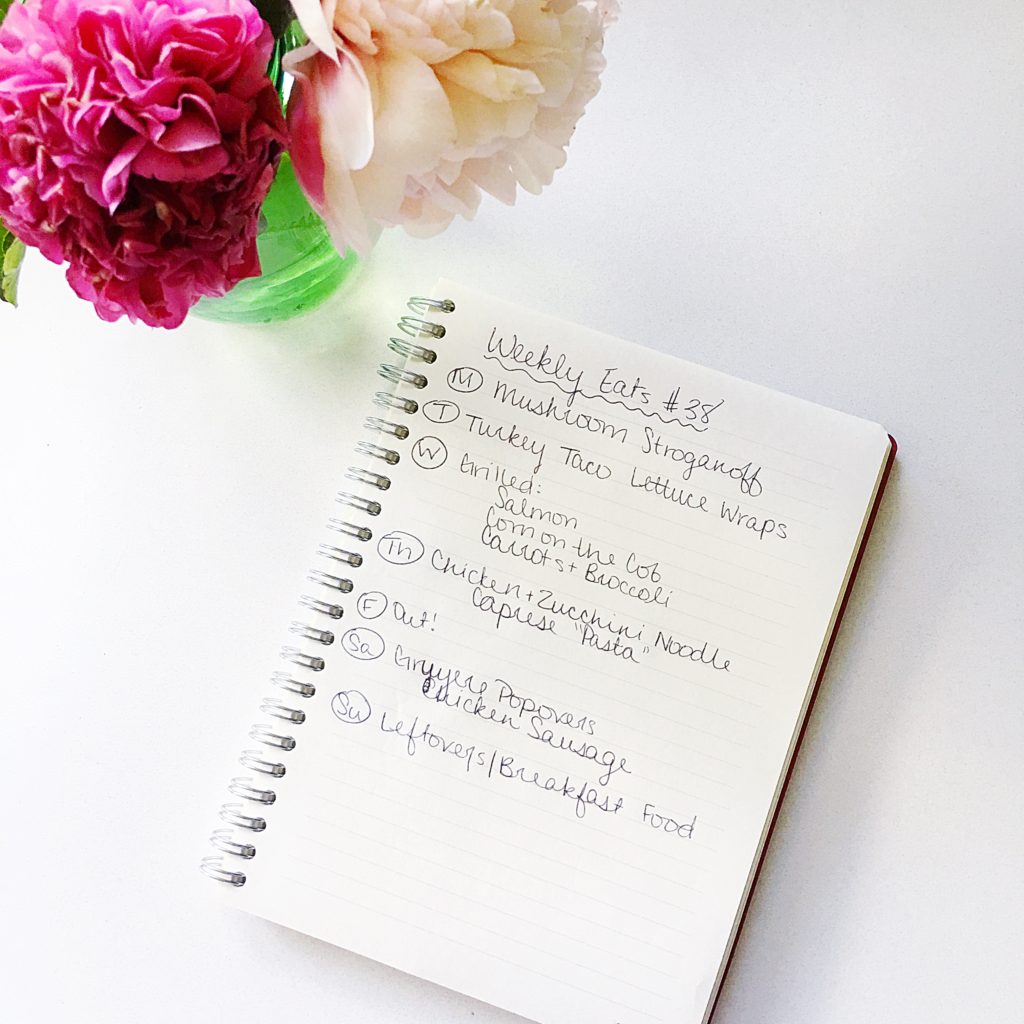 Weekly Eats #38
M Mushroom Stroganoff
T Turkey Taco Lettuce Wraps
W Grilled:
Salmon
Corn on the Cob
Carrots + Broccoli
Th Chicken + Zucchini Noodle
Caprese "Pasta"
F Out!
Sa Gruyere Popovers
Chicken Sausage
Su Leftovers/Breakfast Food